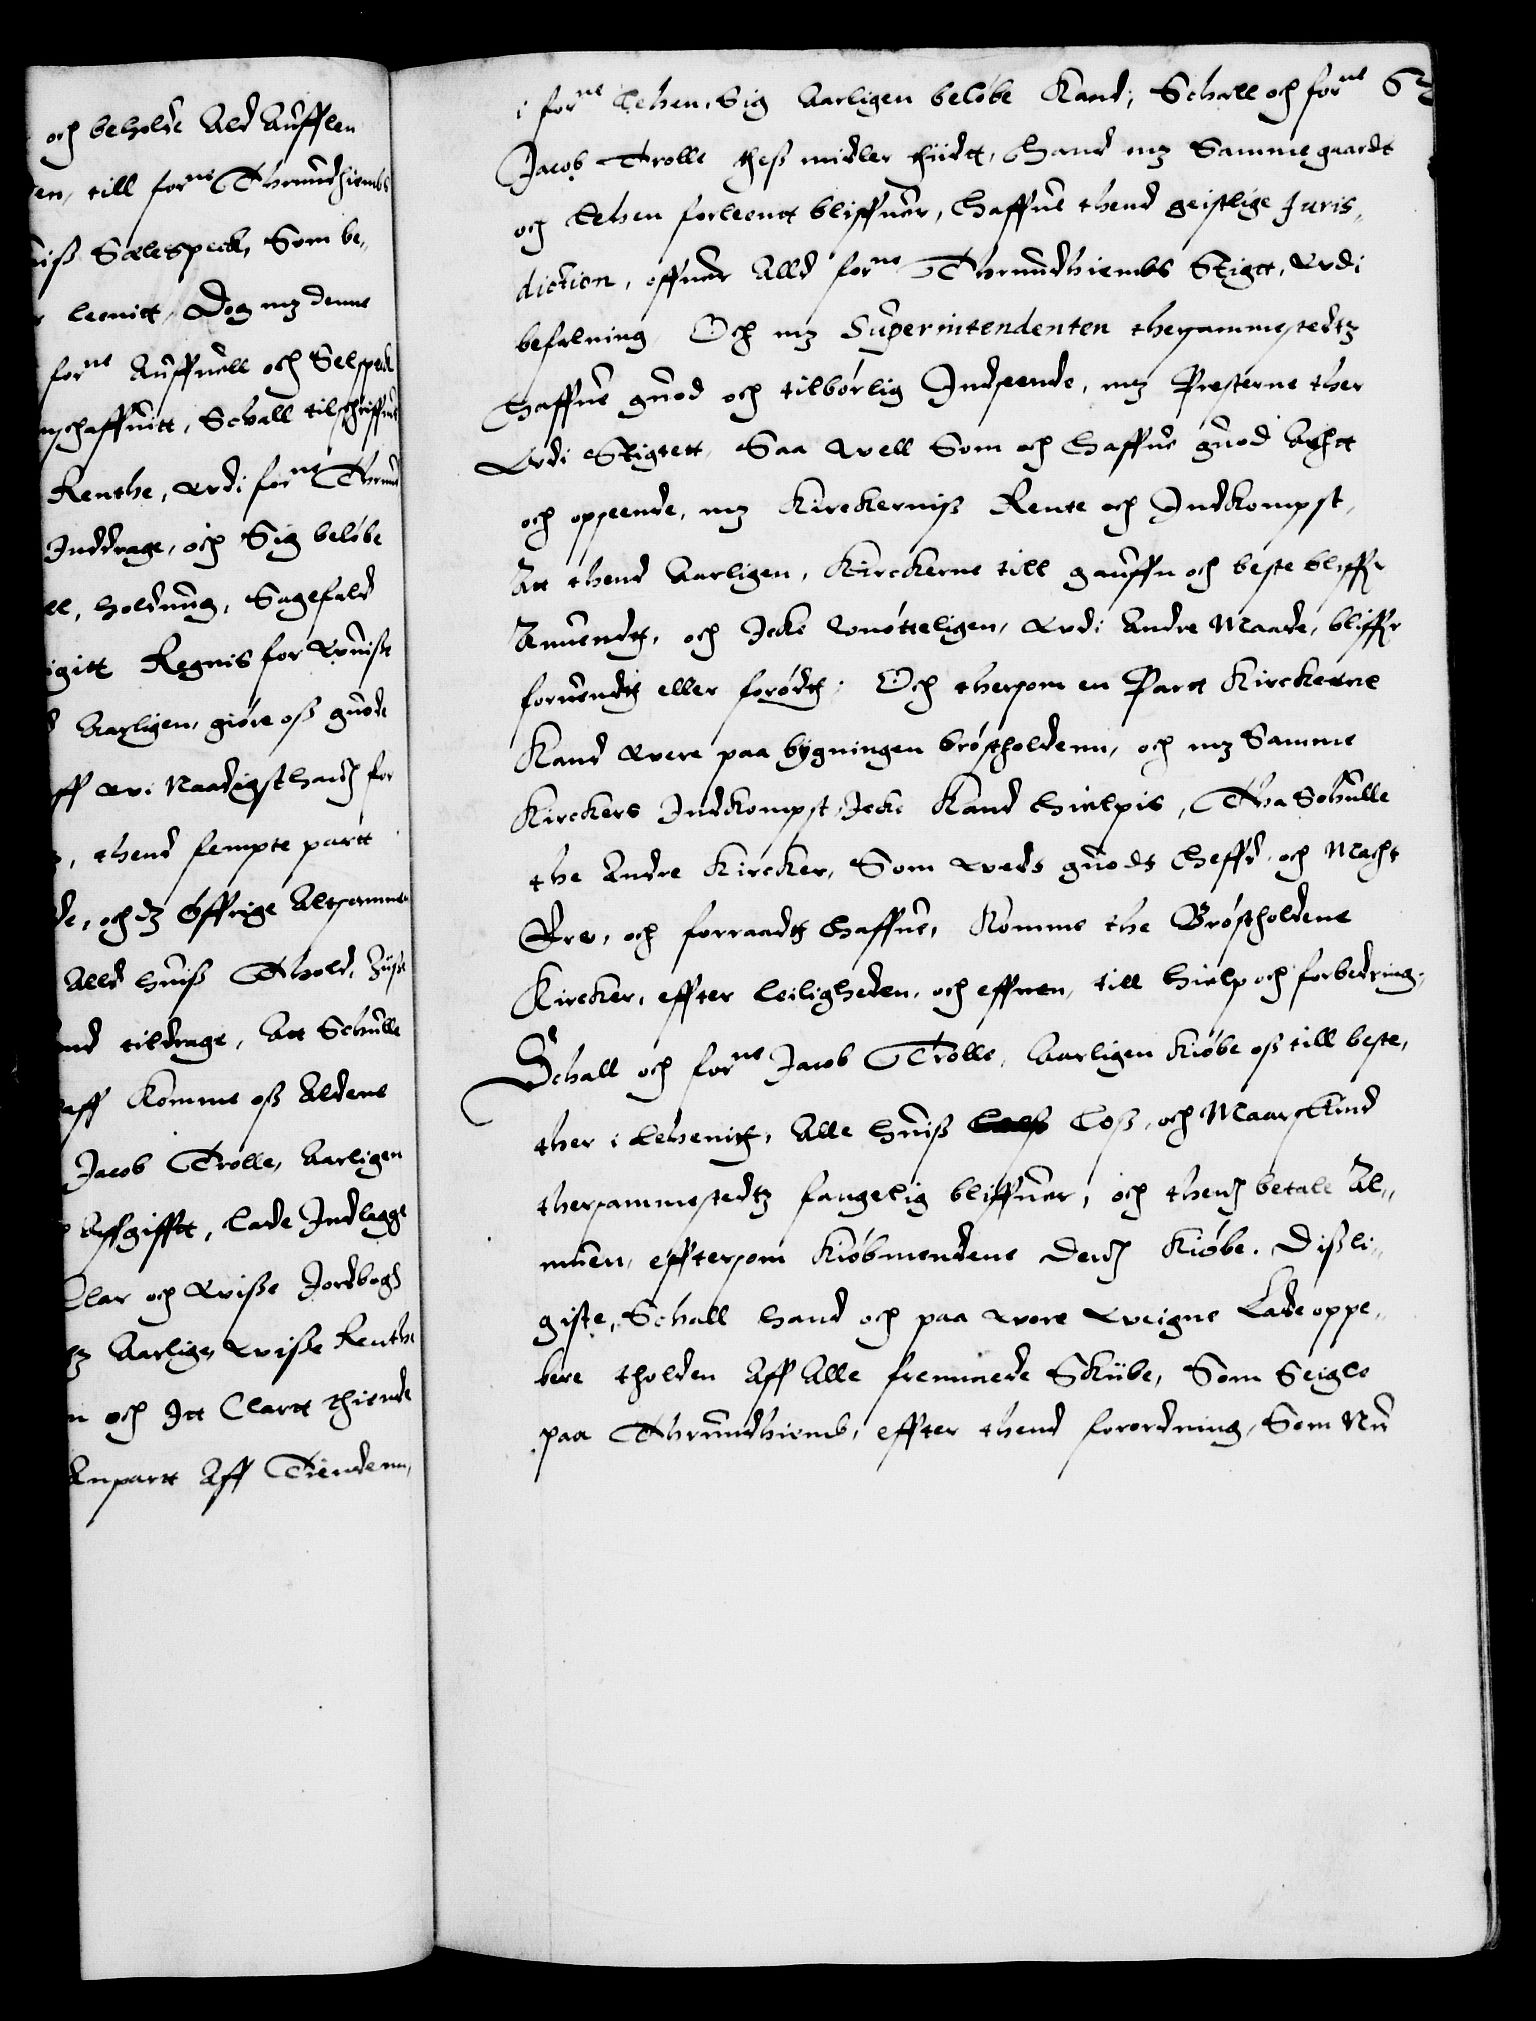 och beholde Ald Aufflen
en, till forne Thrundhiembs
iß Selespeck, Som be,,
leenitt, Dog mz denne
forne Auffuell och Selspeck
nschaffuitt, Schall tilschriffue
Renthe, Udi forne Thrund
Inddrage, och Sig beløbe
ll, holdning, Sagefald
igitt Regnis for Uuiste
Aarligen, giøre oß guode
ff wi Naadigst haffue for
, thend fempte partt
de, och dz Øffrige Altsammen
Alld huiß Thold, Ziise
nd tildrage, Att Schulle
aff Komme oß Aldene
Jacob Trolle, Aarligen
Affgifft, lade Indlegge
Clar och Wisse Jordbogs
tz Aarlige, Wisse Renthe
n och Itt Clartt thiende
Anpartt Aff Tiendenn,
i forne Lehen, Sig Aarligen beløbe Kand; Schall och forne
Jacob Trolle theß midler thiidt, Hand mz Samme gaardt
och Lehen forleent bliffuer, Haffue thend geistlige Juris,,
diction, offuer Alld forne Thrundhiembs Stigtt, Udi
befalning, Och mz Superintendenten thersammestedtz
Haffue guod och tilbørlig Indseende, mz Presterne ther
Udi Stigtett, Saa well Som och Haffue guod Acht
och opseende, mz Kirckerniß Rente och Indkompst,
Att thend Aarligen, Kirckerne till gauffn och beste bliffr
Anuendtt, och Icke Unøtteligen, Udi Andre Maade, bliffr
foruendtt eller forødtt; Och thersom en Partt Kirckerne
Kand were paa bygningen brøstholdenn, och mz Samme
Kirckers Indkompst, Icke Kand hielpis, Tha Schulle
the Andre Kircker, Som weds guodt Heffd, och Macht
Ere, och forraadtt Haffue, Komme the Brøstholdene
Kircker, effter leiligheden, och effnen, till hielp och forbedring,
Schall och forne Jacob Trolle, Aarligen Kiøbe oß till beste,
ther i Lehenitt, Alle huiß Loß, och Maarskind
thersammestedtz fangelig bliffuer, och them betale Al,,
muen, efftersom Kiøbmendene dem Kiøbe. Dißli,,
giste, Schall hand och paa wore Weigne Lade oppe,,
bere tholden Aff Alle fremmede Skiibe, Som Seigle
paa Thrundhiemb, effter thend forordning, Som Nu